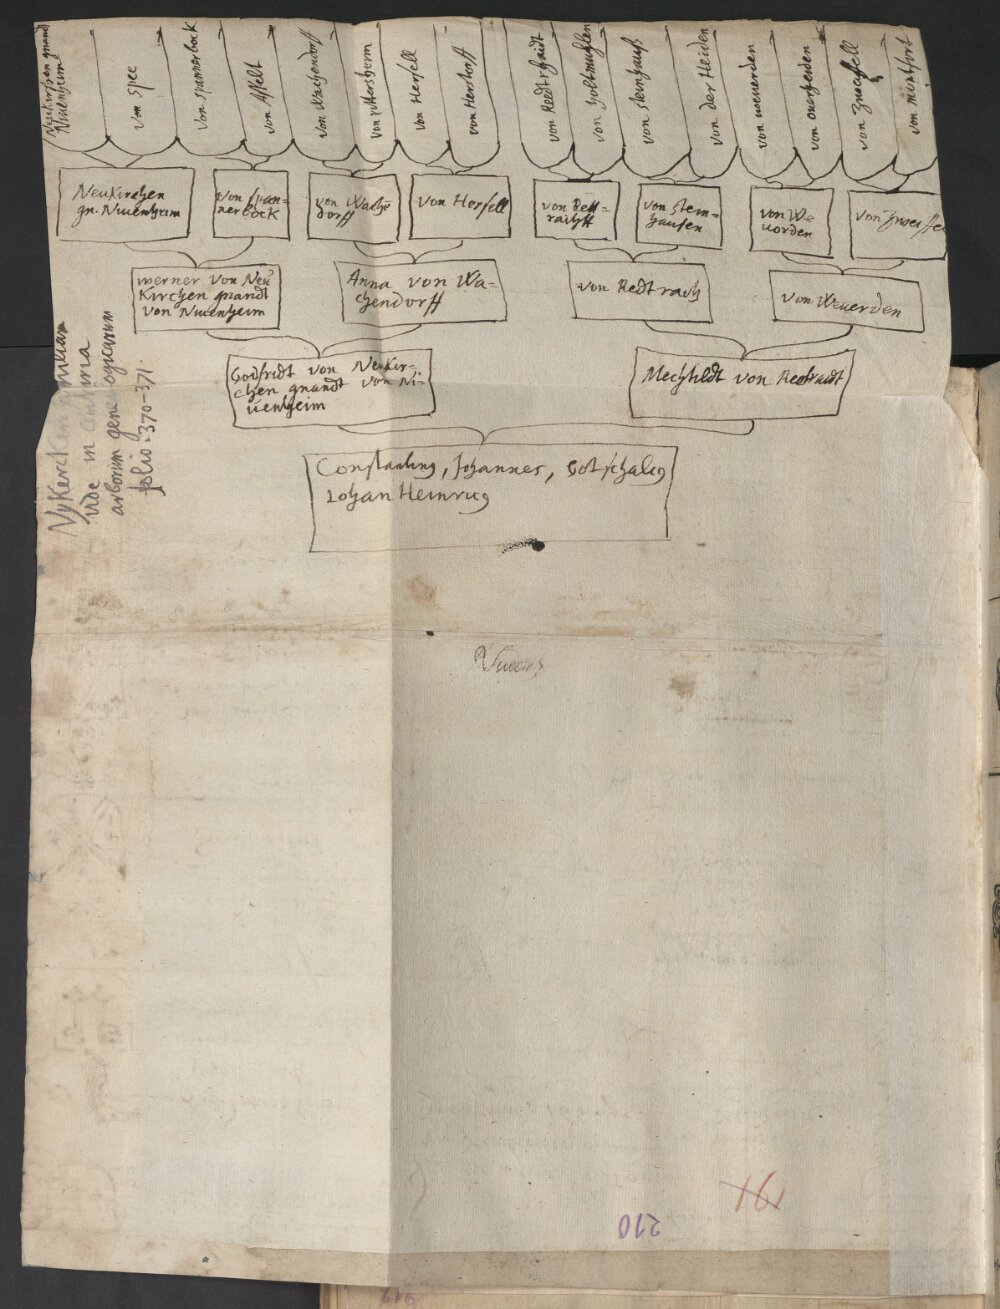 Neukirchen gnandt
Nivenheim
von Spee
von Spannerbock
von Asselt
von Wachendorff
von Hersell
von Herstorff
von Reedtrhaidt
von Holtmuhlen
von Steinhauß
von der Heiden
von weuerden
von overheiden
von Zweiffell
von mintfort
Neukirchen
gn. Nivenheim
von Span-
nerbock
von Wache
dorff
von Hersell
von Rett-
raidtt
von Stein-
hausen
von We
vorden
von Zweiffel
werner von Neu
Kirchen gnandt
von Nivenheim
Anna von Wa-
chendorff
von Redtrach
von Weuerden
Godfridt von Neukir-
chen gnandt von Ni-
venheim
Mechtildt von Reetraidt
Constantinus, Johannes, Gotschalcus
Johan Heinricus
Nykercken
vide in
arborum genealogicarum
folio-370-371.
210